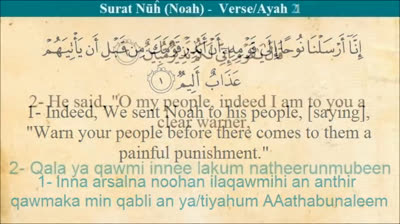 Surat Nūĥ (Noah) - Verse/Ayah
إِنَّا أَرْسَلْنَا نُوحًا إِلَىٰ قَوْمِهِ أَنْ أَنذِرْ قَوْمَكَ مِن قَبْلِ أَن يَأْتِيَهُمْ
عَذَابٌ أَلِيمٌ ﴿١﴾
2- He said, "O my people, indeed I am to you a
clear warner,
1- Indeed, We sent Noah to his people, [saying],
"Warn your people before there comes to them a
painful punishment."
2- Qala ya qawmi innee lakum natheerunmubeen
1- Inna arsalna noohan ilaqawmihi an anthir
qawmaka min qabli an ya/tiyahum AAathabunaleem